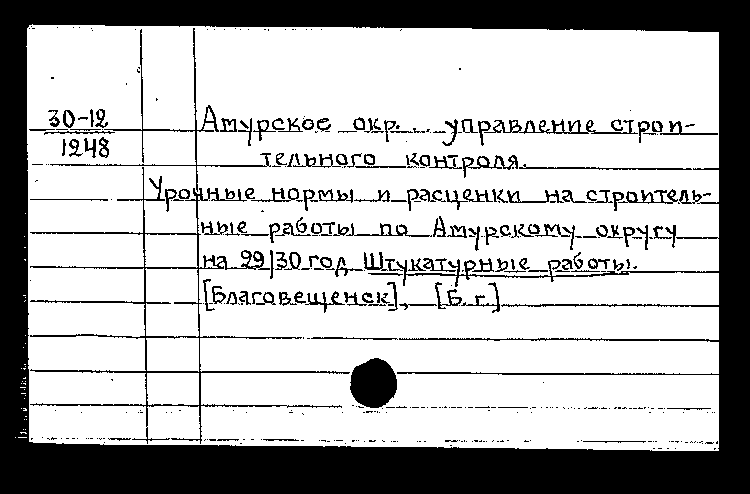 30-12
1248
Амурское окр. .. управление строи-
тельного контроля.
Урочные нормы и расценки на строитель-
ные работы по Амурскому округу
на 29|30 год Штукатурные работы.
[Благовещенск], [Б. г.]